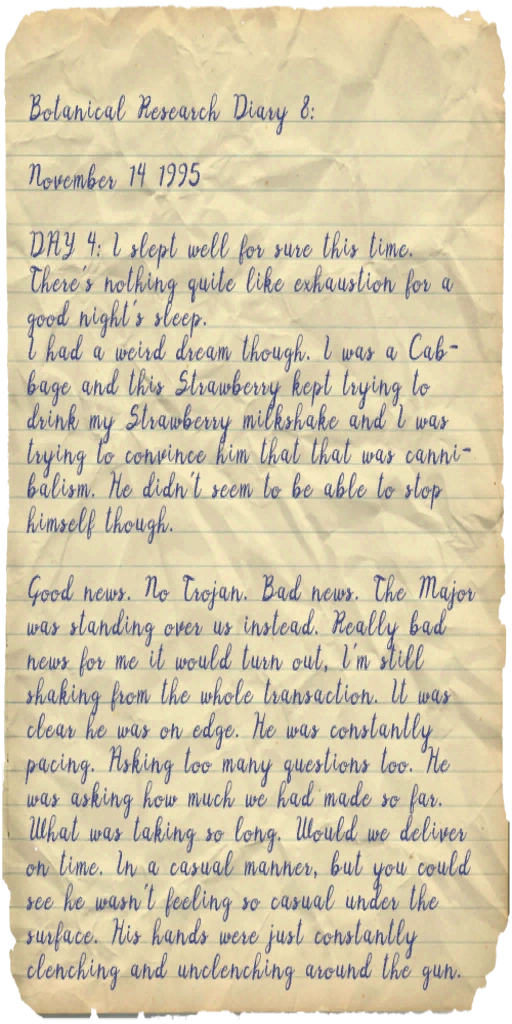 Botanical Research Diary 8:
November 14 1995
DAY 4: I slept well for sure this time.
There's nothing quite like exhaustion for a
good night's sleep.
I had a weird dream though. I was a Cab-
bage and this Strawberry kept trying to
drink my Strawberry milkshake and I was
trying to convince him that that was canni-
balism. He didn't seem to be able to stop
himself though.
Good news. No Trojan. Bad news. The Major
was standing over us instead. Really bad
news for me it would turn out, I'm still
shaking from the whole transaction. It was
clear he was on edge. He was constantly
pacing. Asking too many questions too. He
was asking how much we had made so far.
What was taking so long. Would we deliver
on time. In a casual manner, but you could
see he wasn't feeling so casual under the
surface. His hands were just constantly
clenching and unclenching around the gun.